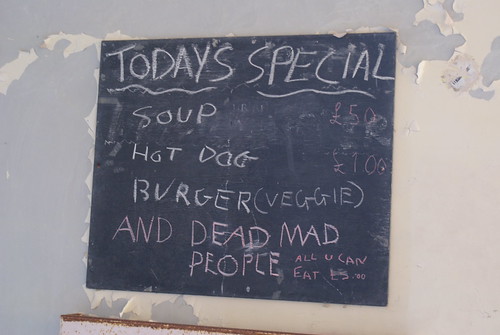 TODAY'S SPECIAL
SOUP £50
HOT DOG £100
BURGER (VEGGIE)
AND DEAD MAD
PEOPLE ALL U CAN
EAT £5.00